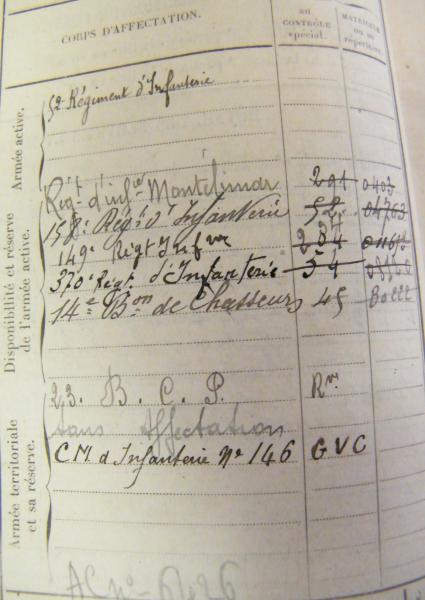 CORPS D'AFFECTATION.
au
CONTRÔLE
spécial.
MATRICULE
ou au
répertoire
Armée active.
52e Régiment d'Infanterie
Disponibilité et réserve
de l'armée active.
Régt d'infie Montélimar 291 0403
158e Régt d'Infanterie 52
149e Régt Infrie 234
370e Régt d'Infanterie 54
14e Bon de Chasseurs 45
Armée territoriale
et sa réserve.
23. B. C. P.
Sans Affectation
C.M. d'Infanterie No 146 GVC
AC No- 6426